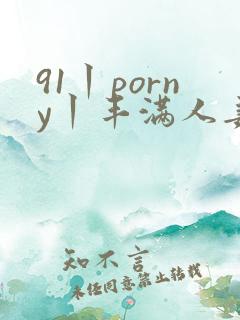 91丨porn
y丨丰满人
知不言
未经同意禁止转载